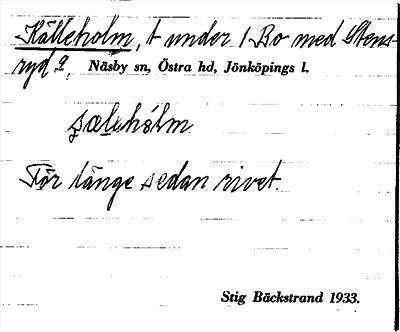 Källeholm, t under 1 Bo med Stens-
ryd 2, Näsby sn, Östra hd, Jönköpings l.
För länge sedan rivet.
Stig Bäckstrand 1933.